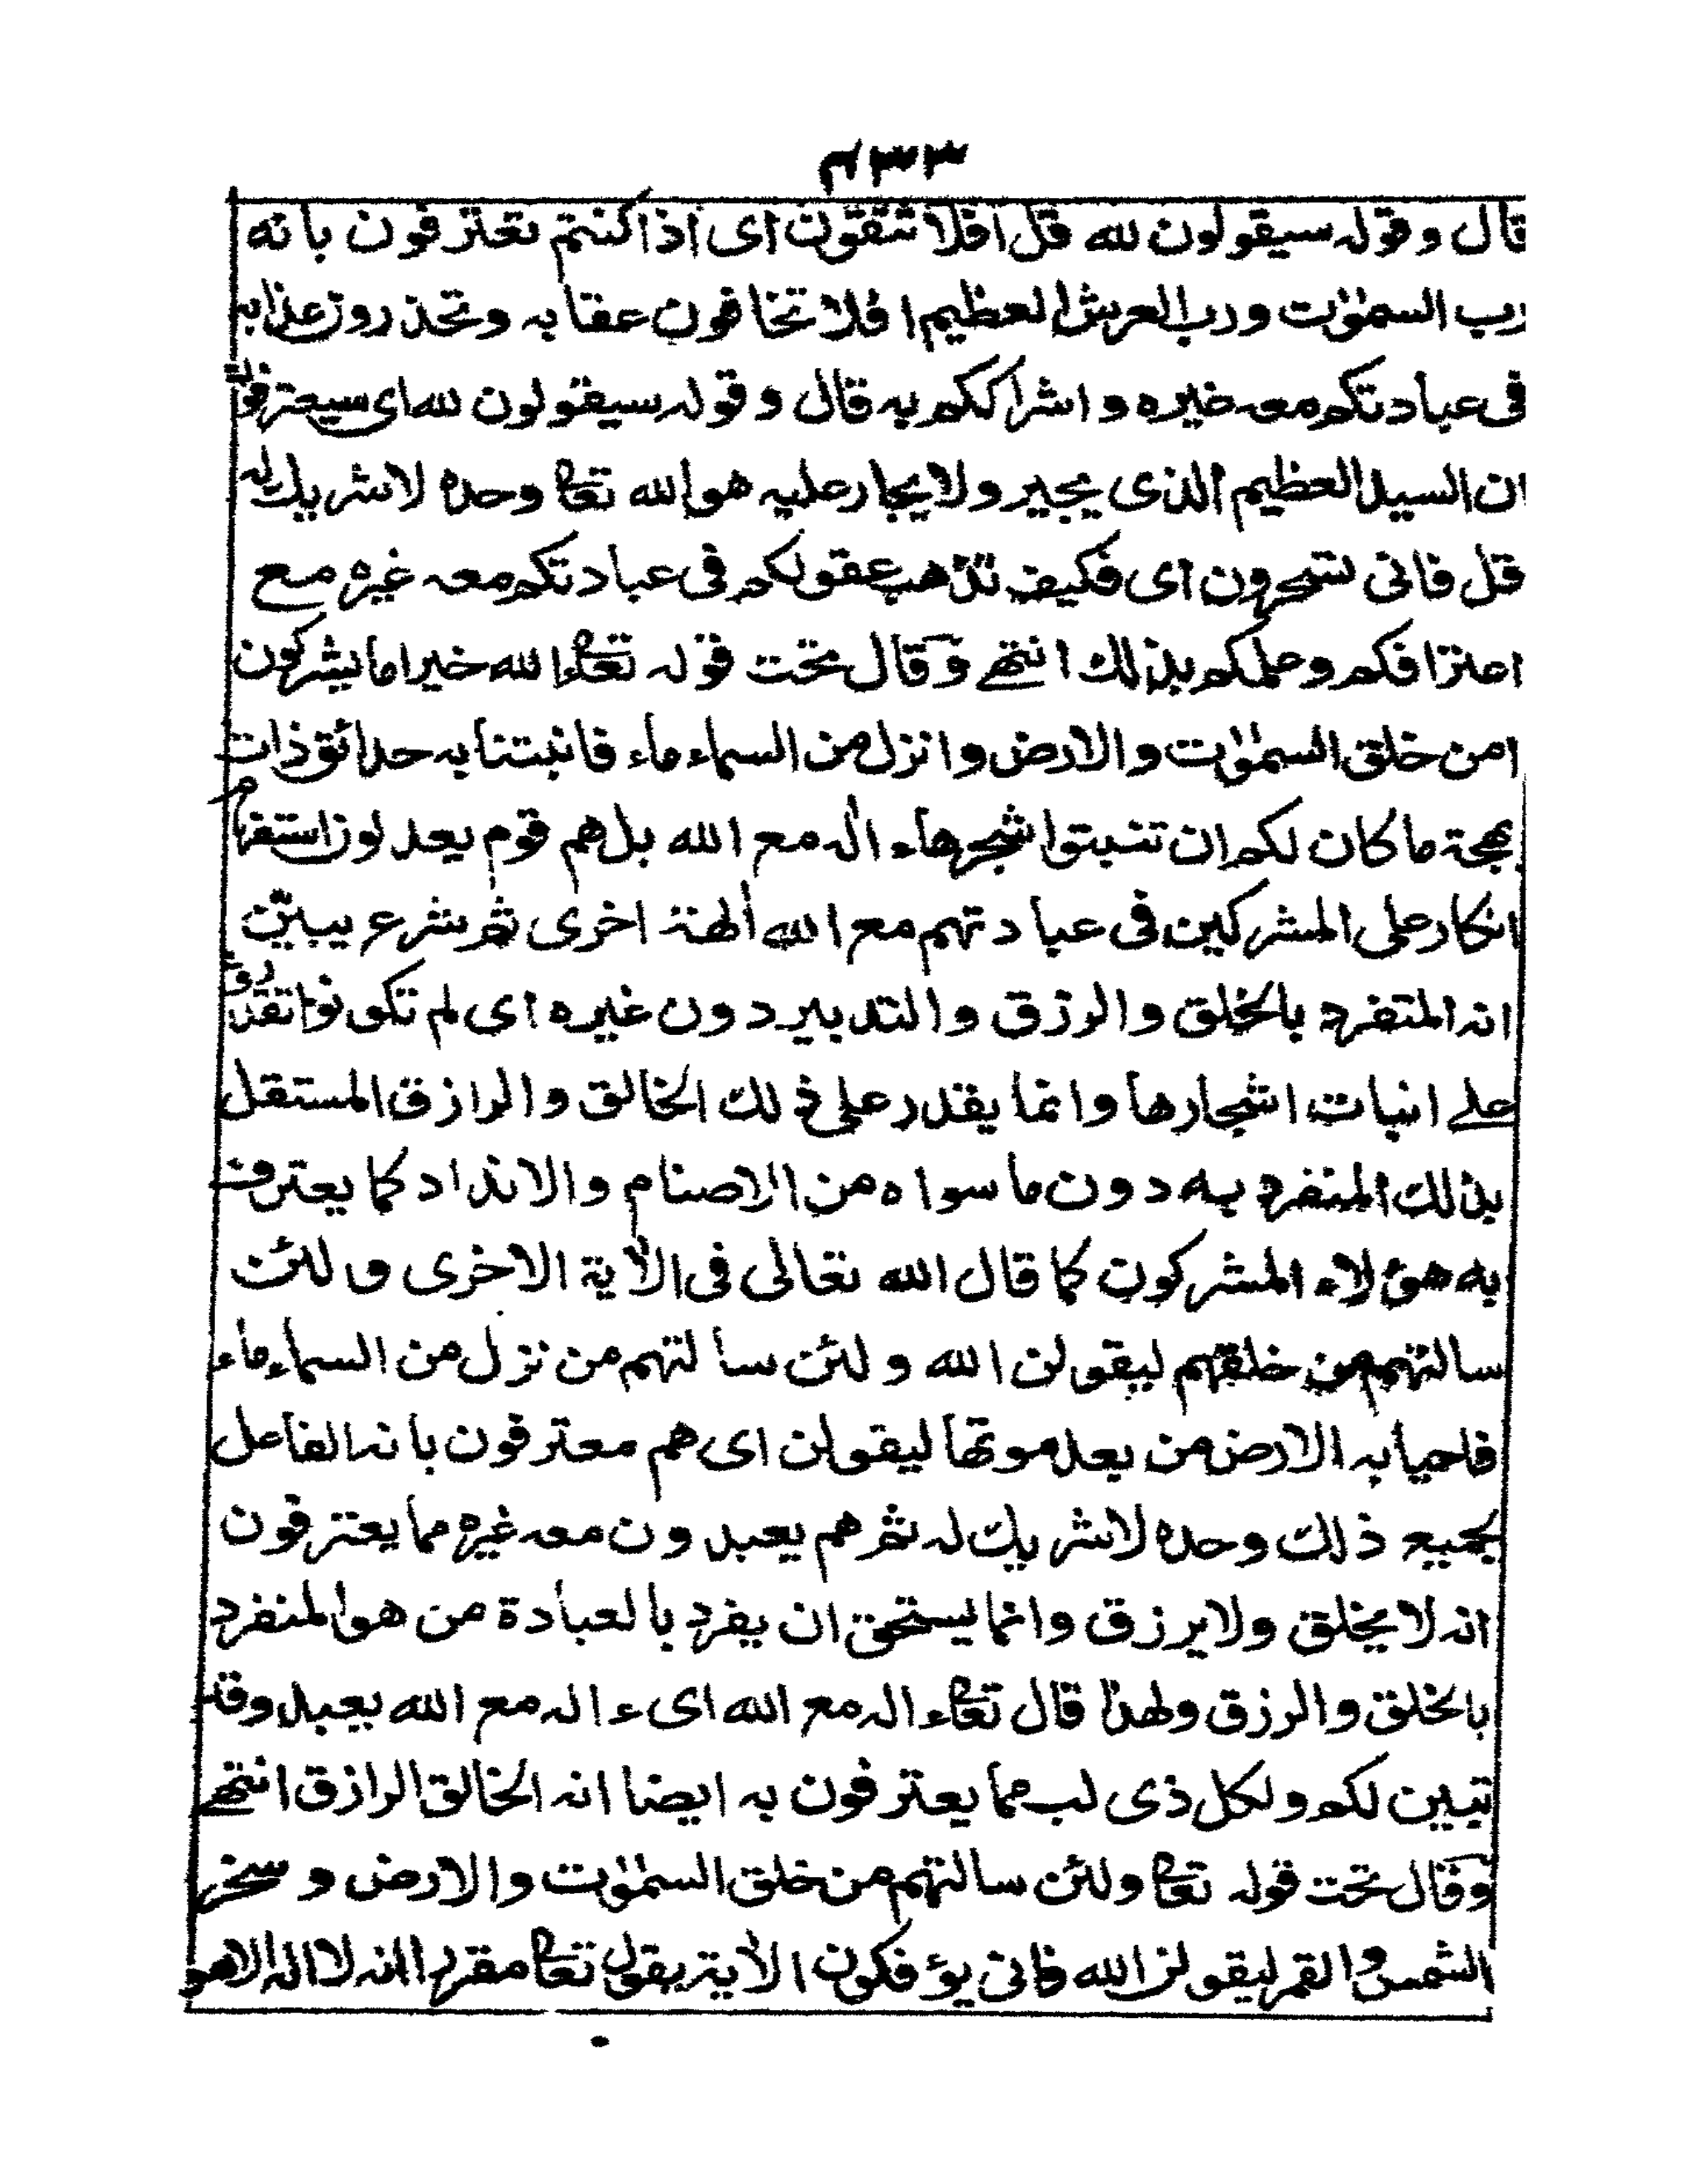 ۴۳۳
قال وقوله سيقولون لله قل افلا تتقون اى اذا كنتم تعترفون بانه
رب السمٰوٰت ورب العرش العظيم افلا تخافون عقابه وتحذرون عذابه
فى عبادتكم معه غيره واشراككم به قال وقوله سيقولون لله اى سيعترفون
ان السيد العظيم الذى يجير ولا يجار عليه هو الله تعا وحده لا شريك له
قل فانى تسحرون اى فكيف تذهب عقولكم فى عبادتكم معه غيره مع
اعترافكم وعلمكم بذلك انتهے وقال تحت قوله تعا ءالله خير اما يشركون
امن خلق السمٰوٰت والارض وانزل من السماء ماء فانبتنا به حدائق ذات
بهجة ما كان لكم ان تنبتوا شجرها ءاله مع الله بل هم قوم يعدلون استفهام
انكار على المشركين فى عبادتهم مع الله اٰلهة اخرى ثم شرع يبين
انه المتفرد بالخلق والرزق والتدبير دون غيره اى لم تكونوا تقدروا
علے انبات اشجارها وانما يقدر على ذلك الخالق والرازق المستقل
بذلك المتفرد به دون ما سواه من الاصنام والانداد كما يعترف
به هؤلاء المشركون كما قال الله تعالى فى الاٰية الاخرى ولئن
سالتهم من خلقهم ليقولن الله ولئن سالتهم من نزل من السماء ماء
فاحيا به الارض من بعد موتها ليقولن اى هم معترفون بانه الفاعل
لجميع ذلك وحده لا شريك له ثم هم يعبدون معه غيره مما يعترفون
انه لا يخلق ولا يرزق وانما يستحق ان يفرد بالعبادة من هو المنفرد
بالخلق والرزق ولهذا قال تعا ءاله مع الله اى ءاله مع الله يعبد وقد
تبين لكم ولكل ذى لب مما يعترفون به ايضا انه الخالق الرازق انتهے
وقال تحت قوله تعا ولئن سالتهم من خلق السمٰوٰت والارض وسخر
الشمس والقمر ليقولن الله فانى يؤفكون الاٰية يقول تعا مقررا انه لا اله الا هو